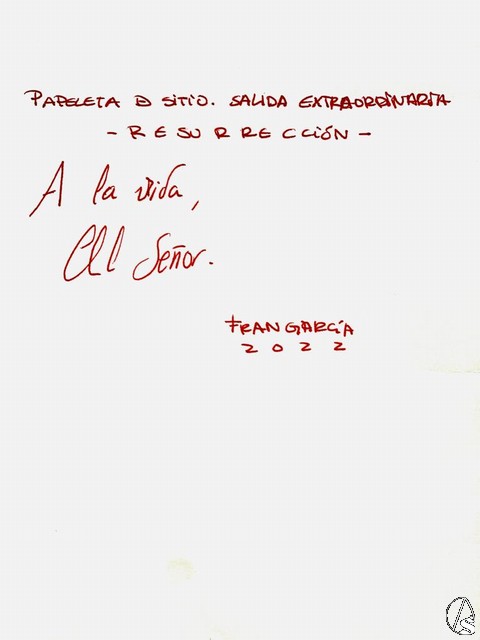 PAPELETA D SITIO. SALIDA EXTRAORDINARIA
- RESURRECCIÓN -
A la vida,
Al Señor.
FRAN GARCÍA
2022